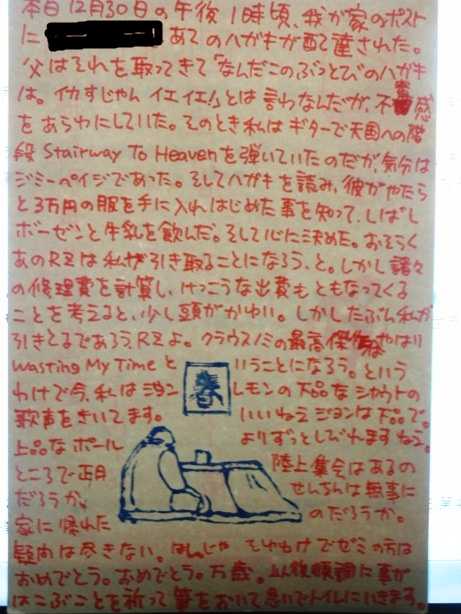 本日12月30日の午後1時頃、我が家のポスト
に あてのハガキが配達された。
父はそれを取ってきて「なんだこのぶっとびのハガキ
は。イカすじゃん イエイエ」とは言わなんだが、不 感
をあらわにしていた。そのとき私はギターで天国への階
段 Stairway To Heavenを弾いていたのだが、気分は
ジミーペイジであった。そしてハガキを読み、彼がやたら
と3万円の服を手に入れはじめた事を知って、しばし
ボーゼンと牛乳を飲んだ。そして心に決めた。おそらく
あのRZは私が引き取ることになろう、と。しかし諸々
の修理費を計算し、けっこうな出費もともなってくる
ことを考えると、少し頭がかゆい。しかしたぶん私が
引きとるであろう、RZよ。クラウスノミの最高傑作はやはり
Wasting My Time と いうことになろう。という
わけで今、私はジョン レモンの下品なシャウトの
歌声をきいてます。 いいねェジョンは下品で。
上品なポール よりずっとしびれますねェ。
ところで正月 陸上集会はあるの
だろうか。 せんちんは無事に
家に帰れた のだろうか。
春
疑問は尽きない。ほんじゃ そゆわけでゼミの方は
おめでとう。おめでとう。万歳。以後順調に事が
はこぶことを祈って筆をおいて急いでトイレにいきます。